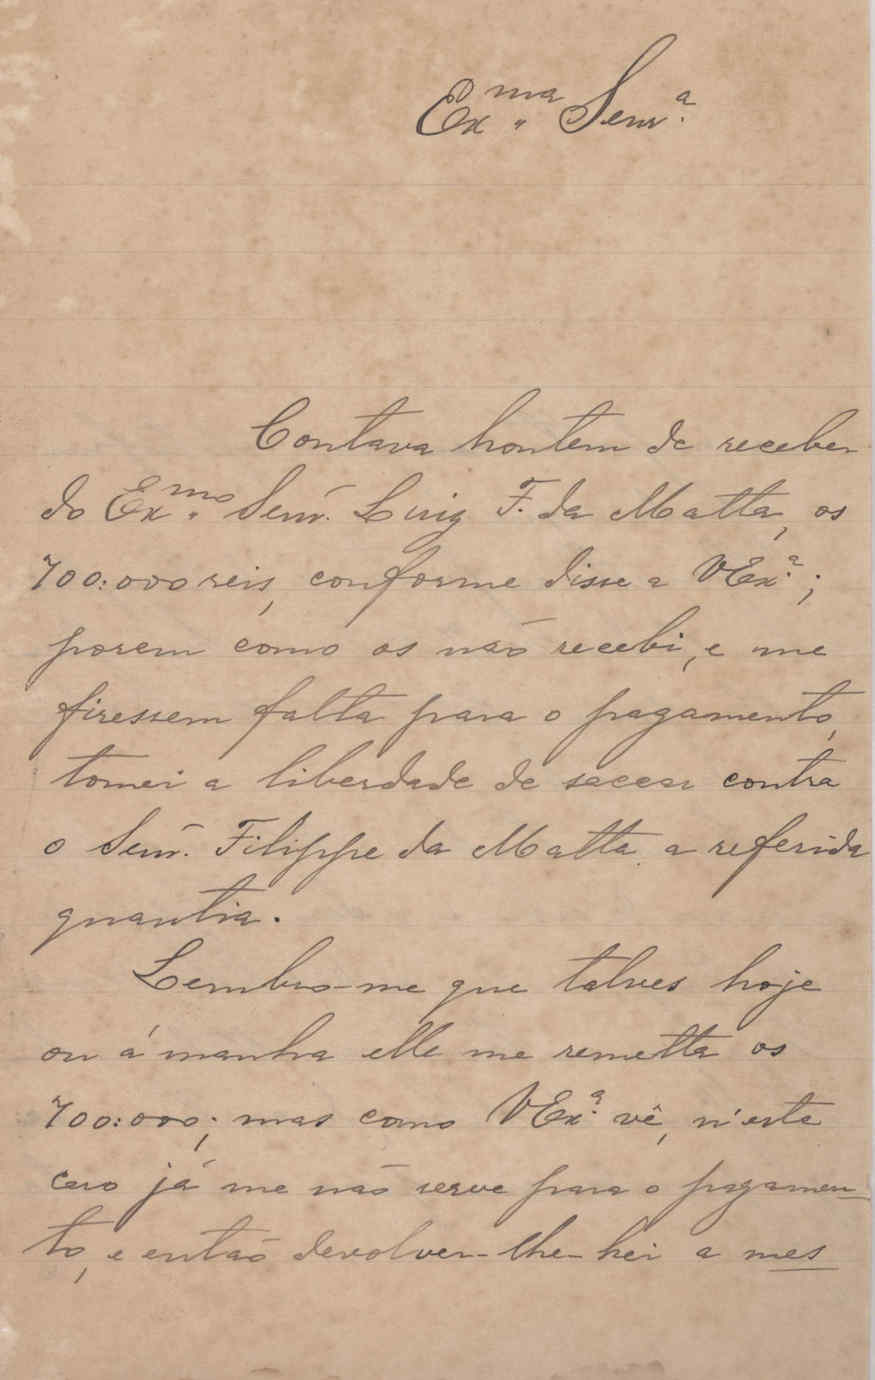 Ex.ma Senr.a
Contava hontem de receber
do Ex.mo Senr. Luiz F. da Matta, os
700:000 reis, conforme disse a VEx.a;
porem como os não recebi, e me
firessem falta para o pagamento,
tomei a liberdade de saccar contra
o Senr. Filippe da Matta a referida
quantia.
Lembro-me que talves hoje
ou á manha elle me remetta os
700:000; mas como VEx.a vê, n'este
caso já me não serve para o pagamen-
to, e então devolver-lhe-hei a mes